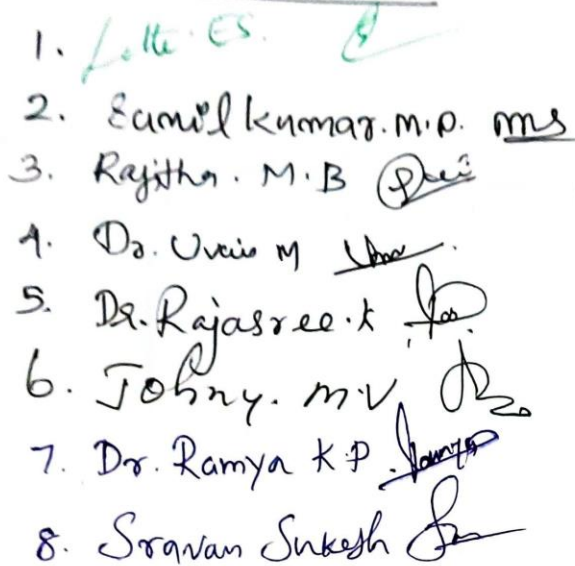 1. Lolti. E.S.
2. Sunil kumar. M.P. ms
3. Rajitha. M.B
4. Dr. Uvais M
5. Dr. Rajasree. k
6. Johny. M.V
7. Dr. Ramya K P.
8. Sravan Sukesh